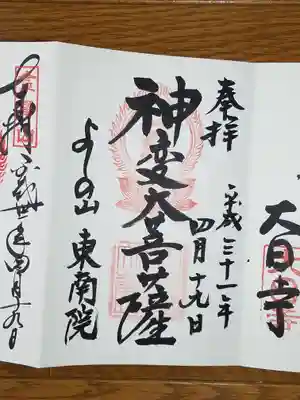 大日寺
奉拝
平成三十一年
四月十九日
神変大菩薩
よしの山
東南院
奉拝
四月十九日